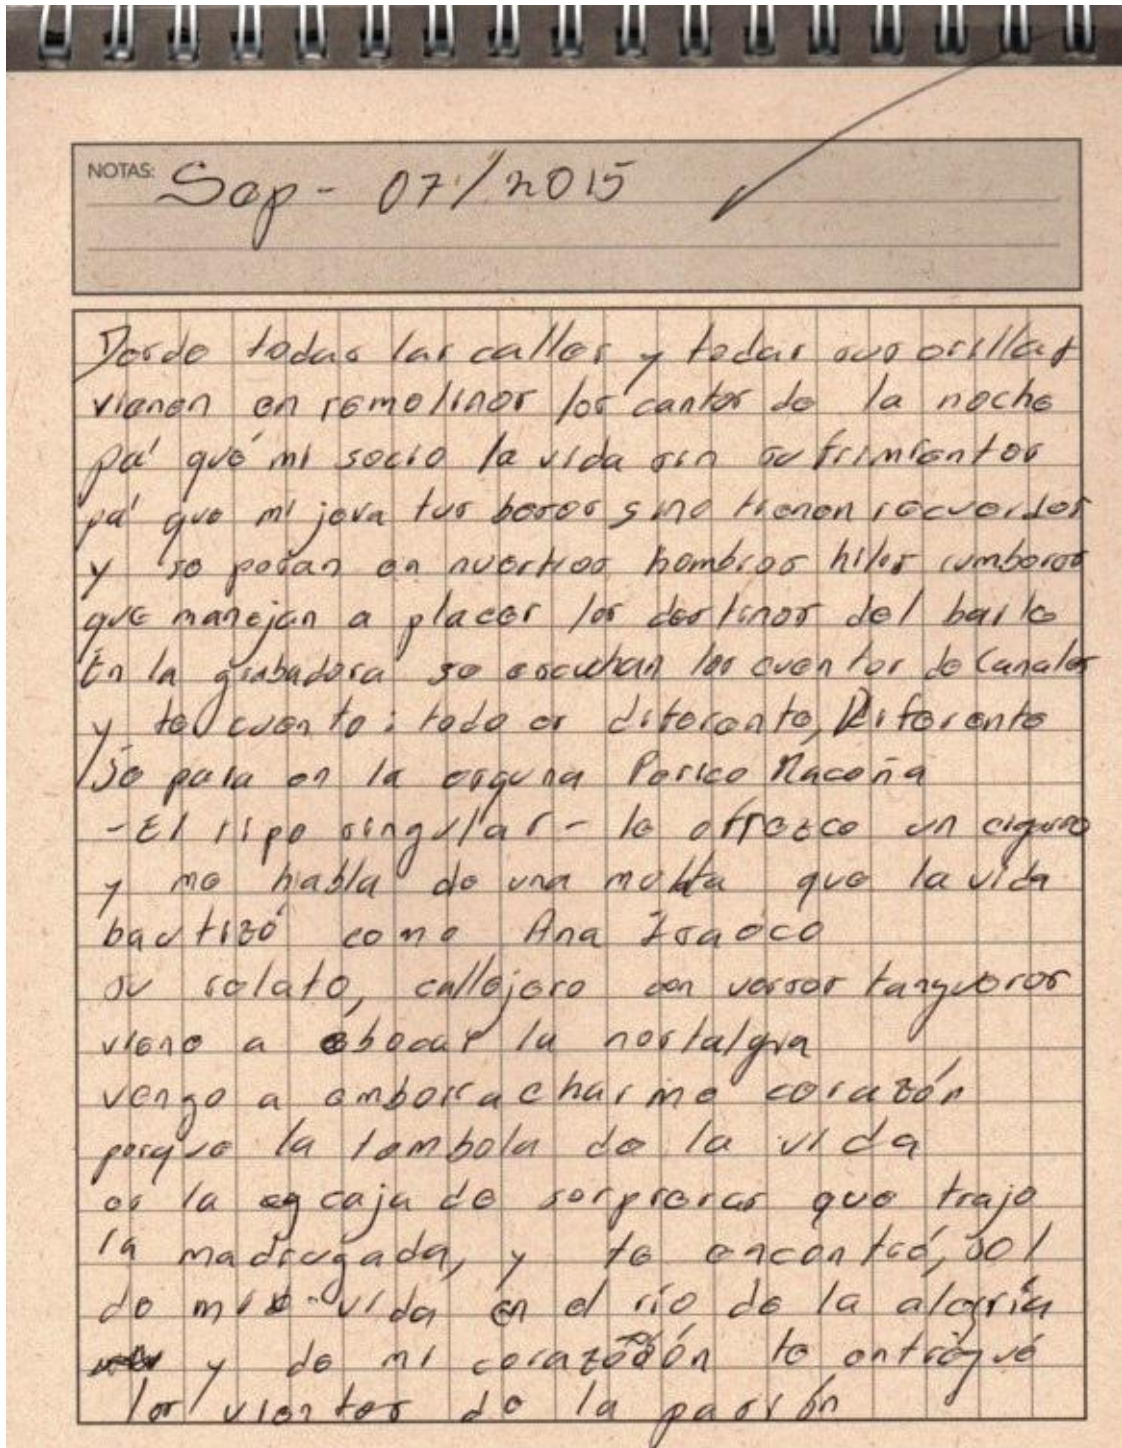 NOTAS: Sep - 07/2015
Desde todas las calles y todas sus orillas
vienen en remolinos los cantos de la noche
pa' qué mi socio la vida sin sufrimientos
pa' que mi jeva tus besos sino tienen recuerdos
y se posan en nuestros hombros hilos rumberos
que manejan a placer los destinos del baile
En la grabadora se escuchan los cuentos de Canales
y te cuento: todo es diferente, Diferente
Se para en la esquina Perico Macoña
- El tipo singular - le ofrezco un cigarro
y me habla de una mulata que la vida
bautizó como Ana Isaoco
su relato, callejero con versos tangueros
viene a evocar la nostalgia
vengo a emborracharme corazón
porque la tómbola de la vida
es la caja de sorpresas que trajo
la madrugada, y te encontré, sol
de mi vida en el río de la alegría
y de mi corazón te entregué
los vientos de la pasión